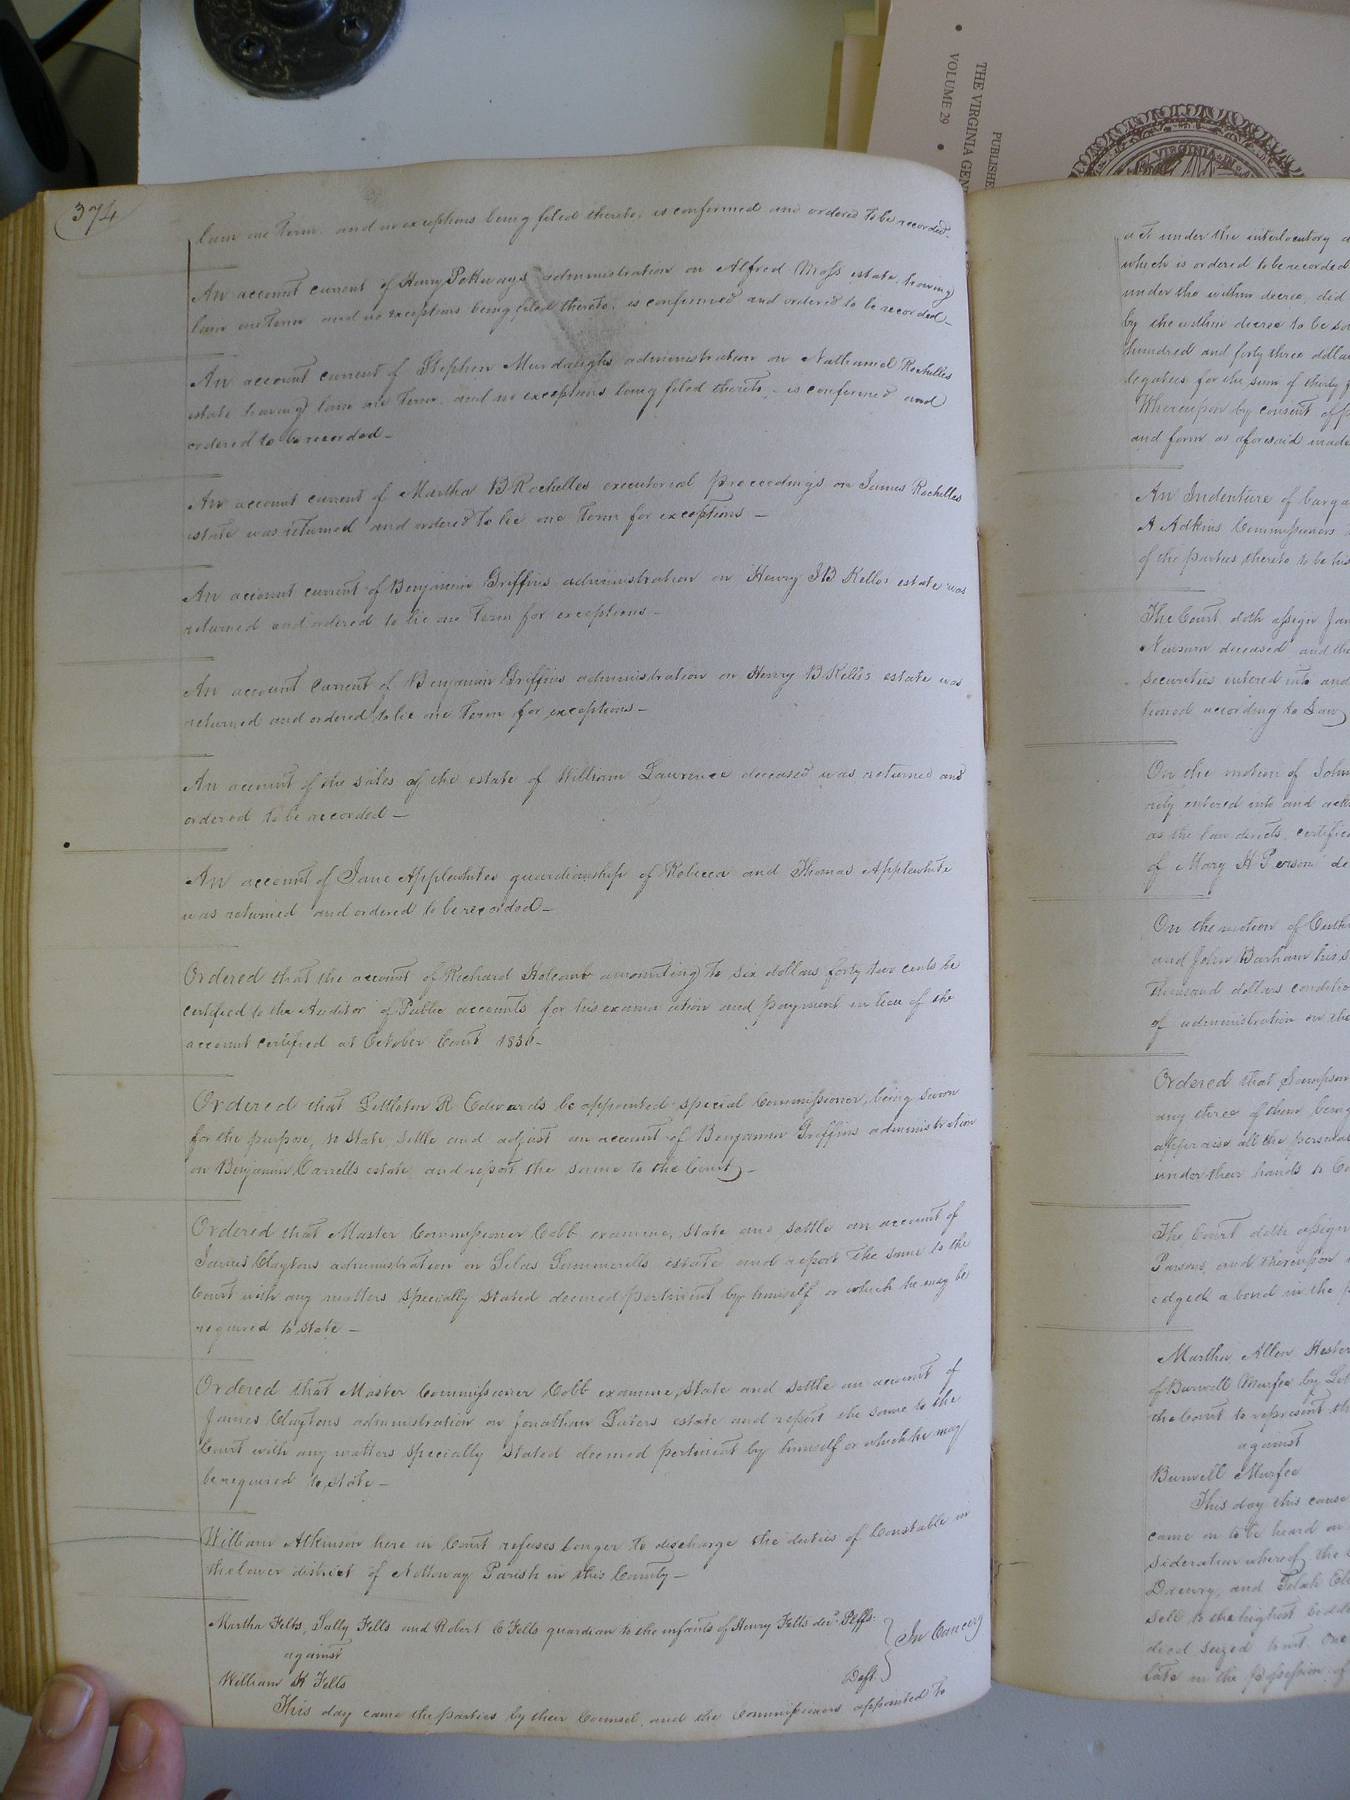 374
lain one Term and no exceptions being filed thereto, is confirmed and ordered to be recorded—
An account current of Henry Pettways administration on Alfred Moss estate, having
lain one Term and no exceptions being filed thereto, is confirmed and ordered to be recorded—
An account current of Stephen Murdaughs administration on Nathaniel Rochelles
estate having lain one Term and no exceptions being filed thereto, is confirmed and
ordered to be recorded—
An account current of Martha B Rochelles executorial proceedings on James Rochelles
estate was returned and ordered to lie one Term for exceptions—
An account current of Benjamin Griffins administration on Henry J B Kellos estate was
returned and ordered to lie one Term for exceptions—
An account current of Benjamin Griffins administration on Henry B Kellos estate was
returned and ordered to lie one Term for exceptions—
An account of the sales of the estate of William Lawrence deceased was returned and
ordered to be recorded—
An account of Jane Applewhites guardianship of Rebecca and Thomas Applewhite
was returned and ordered to be recorded—
Ordered that the account of Richard Holcomb amounting to six dollars forty two cents be
certified to the Auditor of Public accounts for his examination and payment in lieu of the
account certified at October Court 1836—
Ordered that Littleton R Edwards be appointed special Commissioner, being sworn
for the purpose, to state, settle and adjust an account of Benjamin Griffins administration
on Benjamin Carrells estate and report the same to the Court—
Ordered that Master Commissioner Cobb examine, state and settle an account of
James Claytons administration on Silas Summerells estate and report the same to the
Court with any matters specially stated deemed pertinent by himself or which he may be
required to state—
Ordered that Master Commissioner Cobb examine, state and settle an account of
James Claytons administration on Jonathan Luters estate and report the same to the
Court with any matters specially stated deemed pertinent by himself or which he may
be required to state—
William Atkinson here in Court refuses longer to discharge the duties of Constable in
the lower district of Nottoway Parish in this County—
Martha Felts, Sally Felts and Robert C Felts guardian to the infants of Henry Felts decd Plffs.
against
In Cancery
William H Felts Deft.
This day came the parties by their Counsel, and the Commissioners appointed to
PUBLISHE
THE VIRGINIA GEN
VOLUME 29
VIRGINIA
under the interlocutory
which is ordered to be recorded
under the within decree, did
by the within decree to be
hundred and forty three
legatees for the sum of thirty
Whereupon by consent of
and form as aforesaid made
An Indenture of barga
A Adkins Commissioners
of the parties thereto to be his
The Court doth assign
Newsum deceased and
securities entered into and
tioned according to Law
On the motion of John
rity entered into and
as the law directs, certific
of Mary H Person
On the motion of
and John Barham his
thousand dollars conditio
of administration on the
Ordered that Sampson
any three of them being
appraise all the personal
under their hands to
The Court doth assign
Parsons and thereupon
edged a bond in the
Martha Allen Hester
of Burwell Murfee by
the Court to represent
against
Burwell Murfee
This day this cause
came on to be heard on
sideration whereof the
Drewry, and
sell to the highest bidder
died seized
late in the possession of